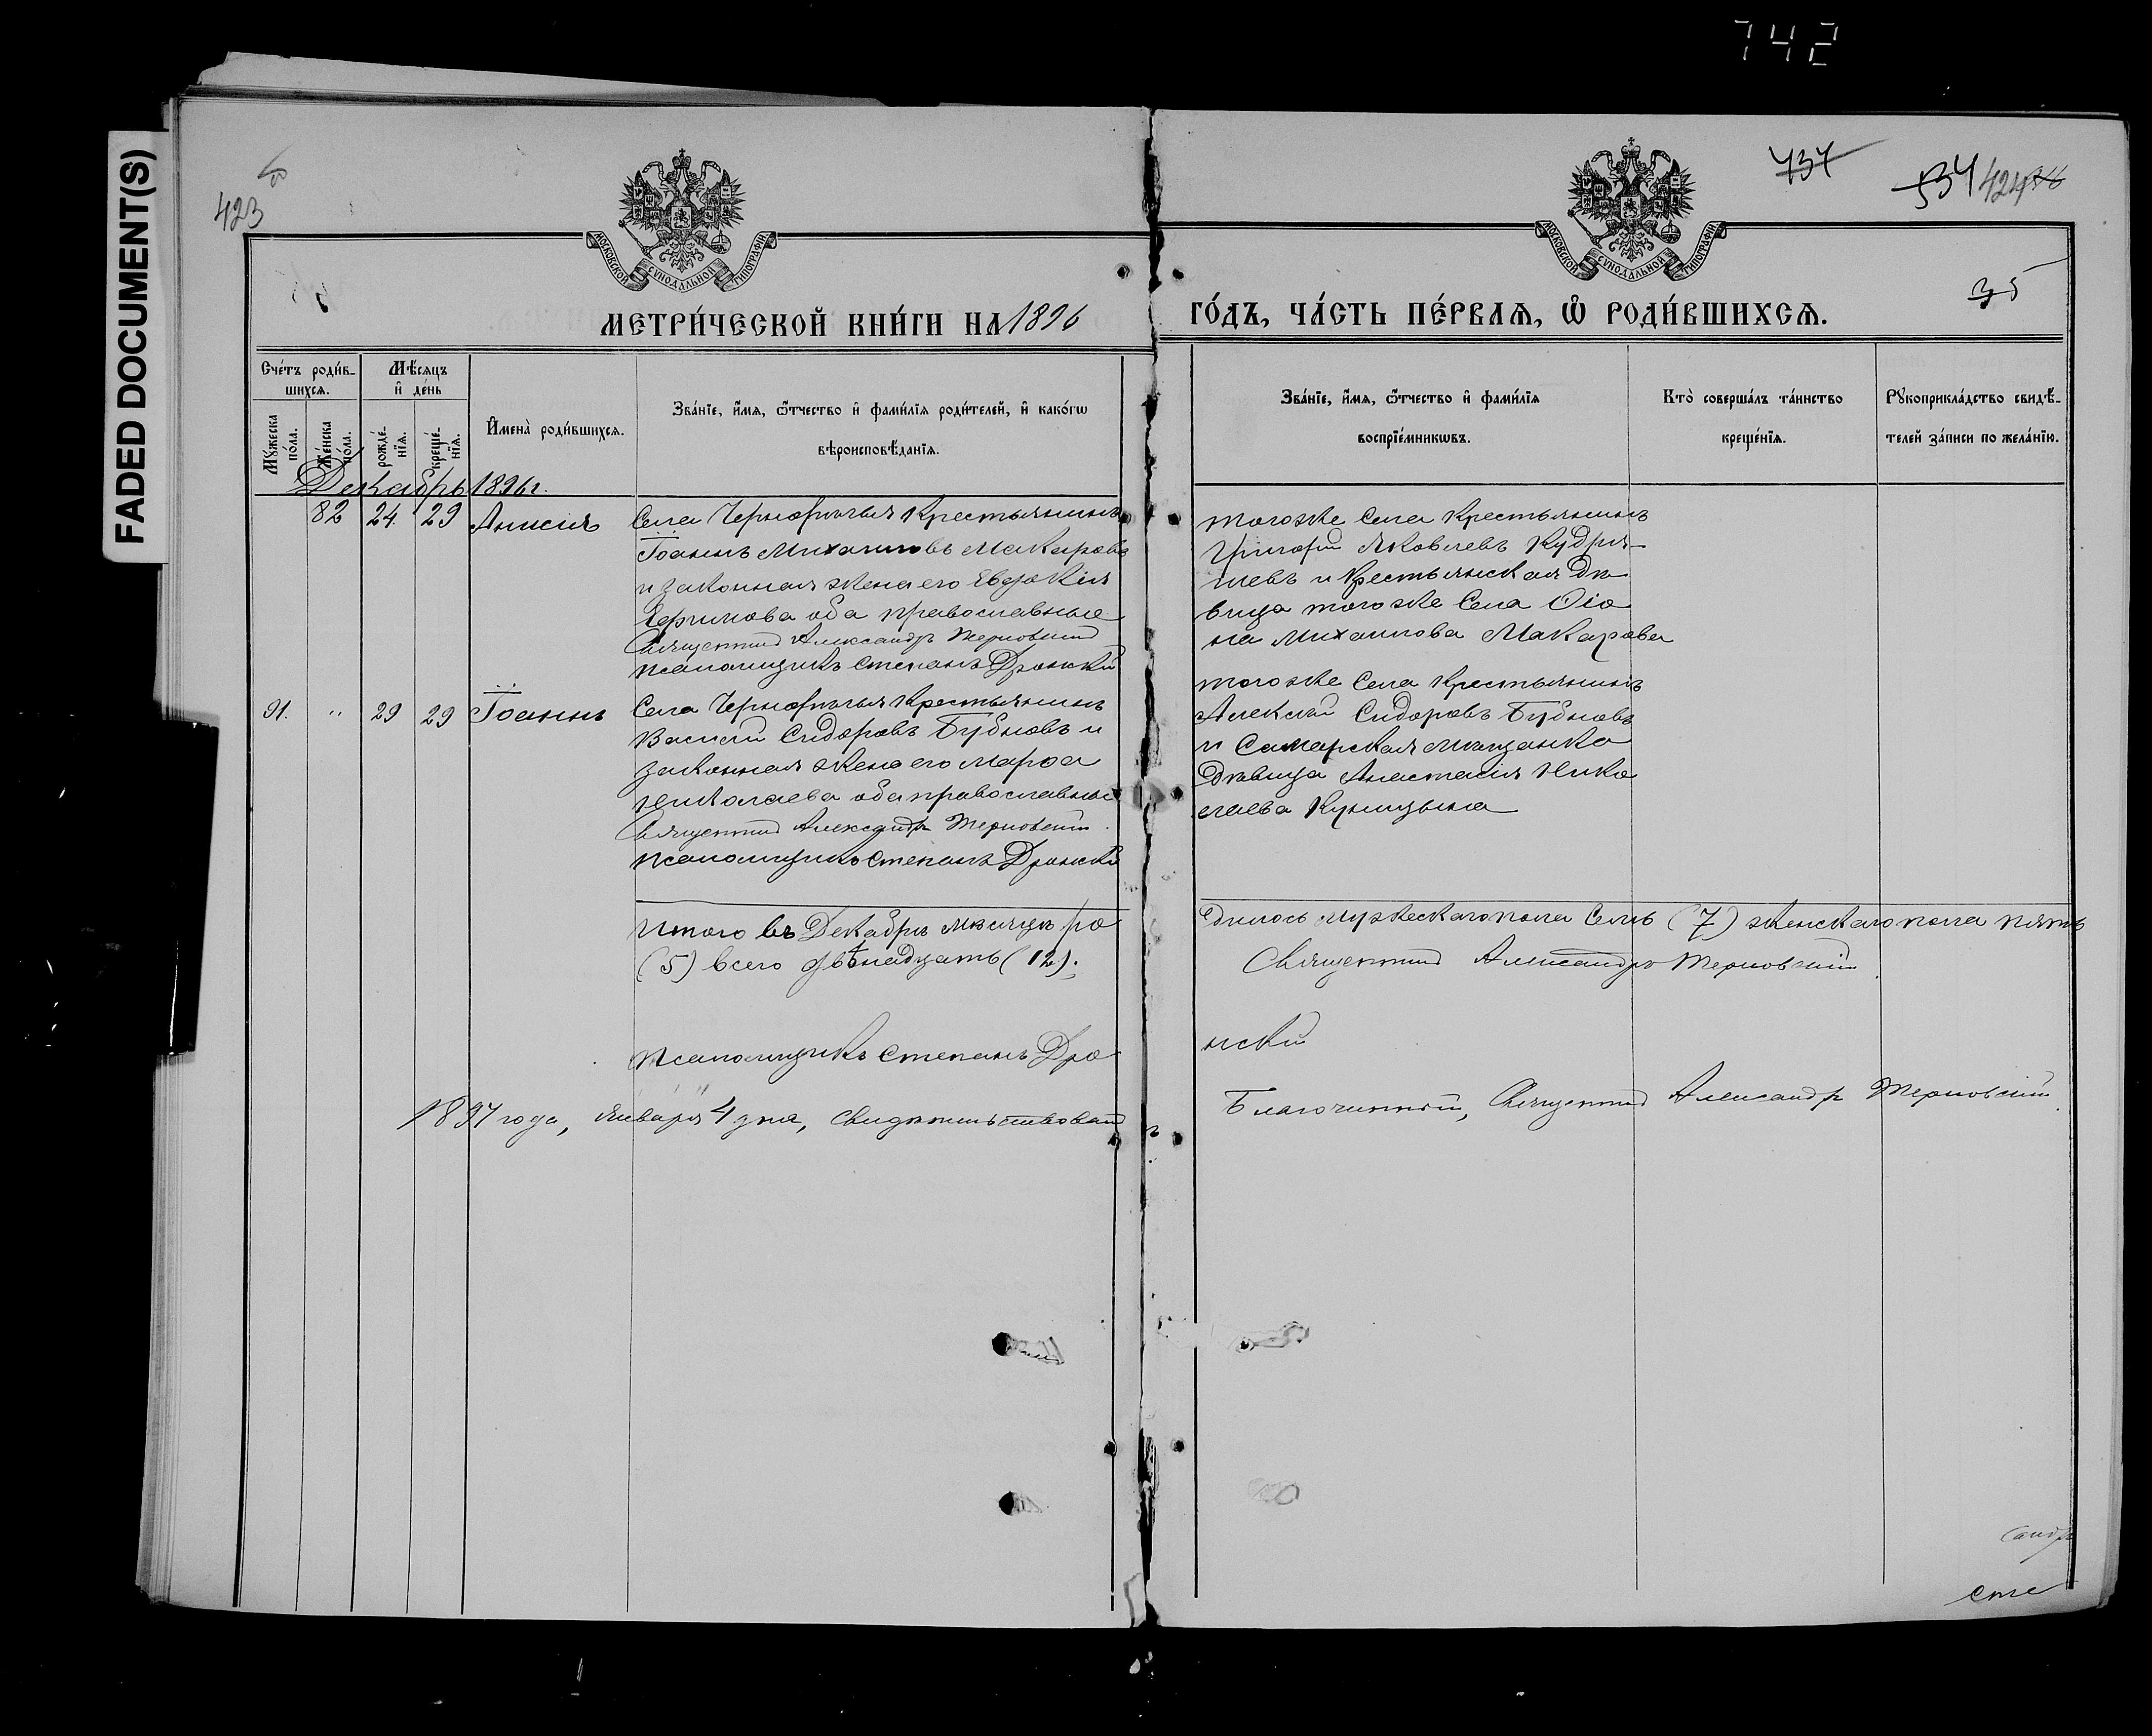 742
FADED DOCUMENT(S)
423
737
534 424
35
МОСКОВСКОЙ СѴНОДАЛЬНОЙ ТИПОГРАФІИ
МОСКОВСКОЙ СѴНОДАЛЬНОЙ ТИПОГРАФІИ
МЕТРИ́ЧЕСКОЙ КНИ́ГИ НА 1896
ГО́ДЪ, ЧА́СТЬ ПЕ́РВАѦ, Ѡ҆ РОДИ́ВШИХСѦ.
Сче́тъ роди́в-
шихсѧ.
Мѣ́сѧцъ
и҆ де́нь
Мꙋ́жеска
по́ла.
Же́нска
по́ла.
рожде́-
нїѧ.
креще́-
нїѧ.
И҆мена̀ роди́вшихсѧ.
Зва́нїе, и҆́мѧ, ѻ҆́тчество и҆ фами́лїѧ роди́телей, и҆ како́гѡ
вѣроисповѣ́данїѧ.
Зва́нїе, и҆́мѧ, ѻ҆́тчество и҆ фами́лїѧ
воспрїе́мникѡвъ.
Кто̀ соверша́лъ та́инство
креще́нїѧ.
Рꙋкоприкла́дство свидѣ́-
телей за́писи по жела́нїю.
Декабрь 1896 г.
82 24. 29 Анисія
Села Чернорѣчья Крестьянинъ
Іоаннъ Михаиловъ Макаровъ
и законная жена его Евдокія
Ефимова оба православные
Священникъ Александръ Терновскій
псаломщикъ Степанъ Дронскій
тогоже Села Крестьянинъ
Григорій Яковлевъ Кудря-
шевъ и Крестьянская дѣ
вица тогоже Села Ѳіо
на Михаилова Макарова
91. " 29 29 Іоаннъ
Села Чернорѣчья Крестьянинъ
Василій Сидоровъ Бубновъ и
законная жена его Марѳа
Николаева оба православные
Священникъ Александръ Терновскій.
псаломщикъ Степанъ Дронскій
тогоже Села Крестьянинъ
Алексѣй Сидоровъ Бубновъ
и Самарская мѣщанка
дѣвица Анастасія Нико
лаева Куницына
Итого въ Декабрѣ мѣсяцѣ ро
дилось мужескаго пола семь (7) женскаго пола пять
(5) всего двѣнадцать (12).
Священникъ Александръ Терновскій.
псаломщикъ Степанъ Дро
нскій
1897 года, Января 4 дня, свидѣтельствовалъ
Благочинный, Священникъ Александръ Терновскій.